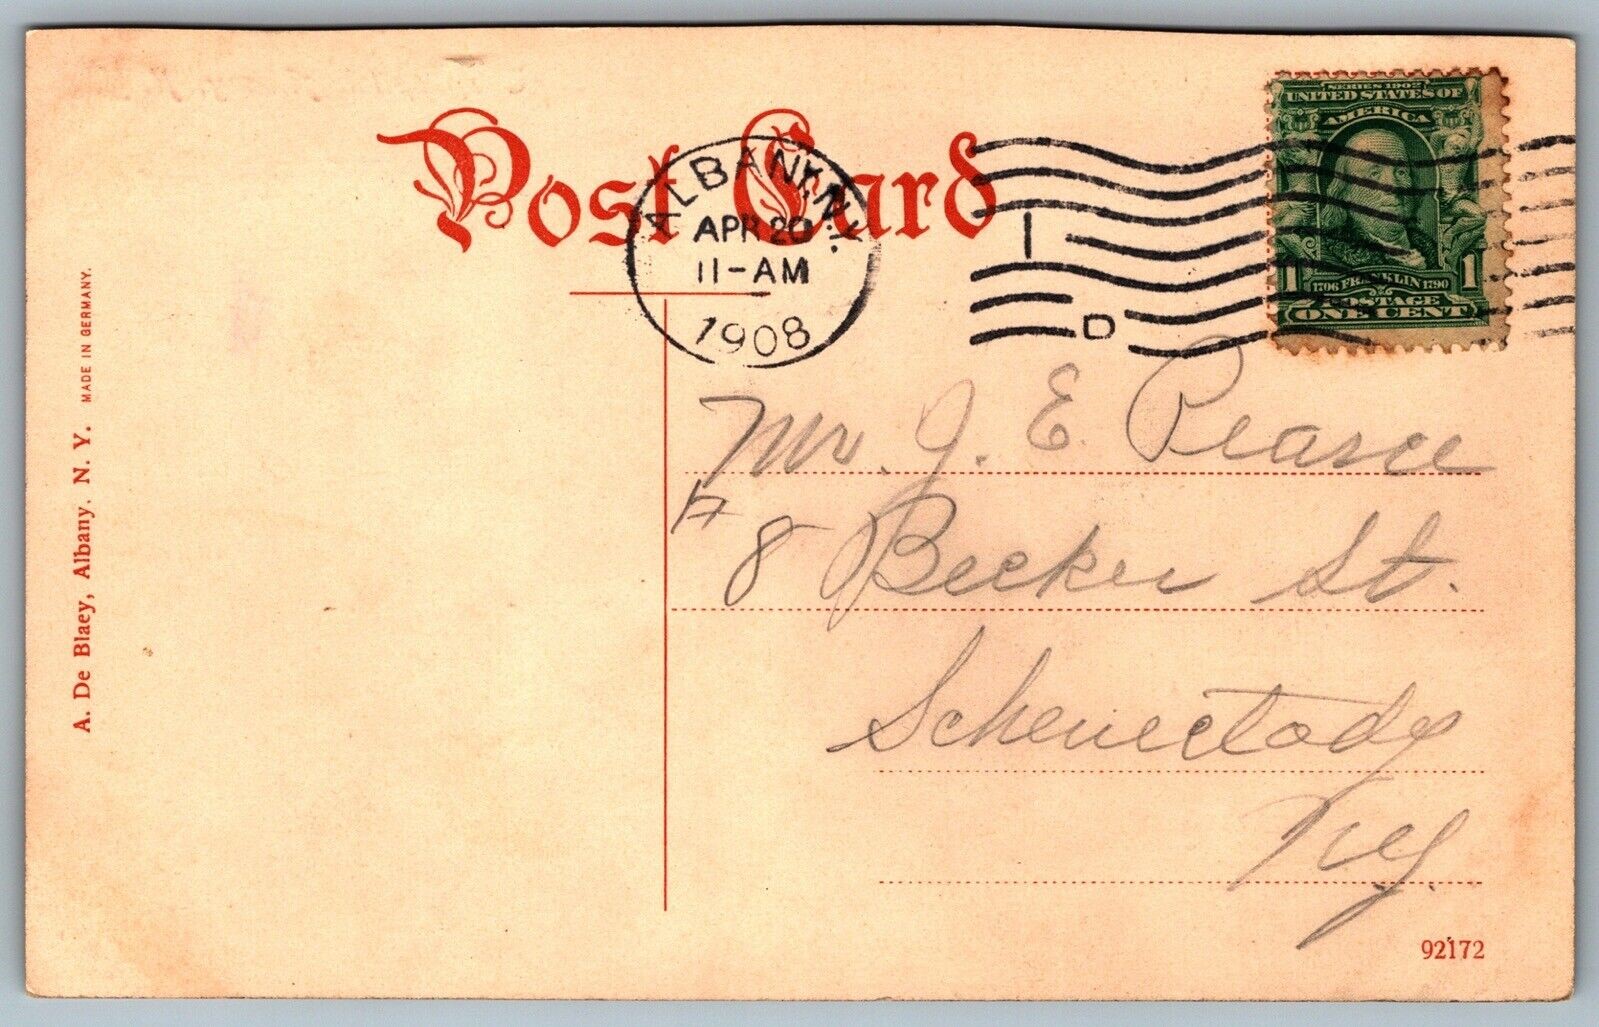 Post Card
ALBANY, N.Y.
APR 20
11-AM
1908
1
D
SERIES 1902
UNITED STATES OF
AMERICA
1 1706 FRANKLIN 1790 1
POSTAGE
ONE CENT
Mr. J. E. Pearse
# 8 Becker St.
Schenectady
N.Y.
A. De Blaey, Albany. N. Y. MADE IN GERMANY.
92172